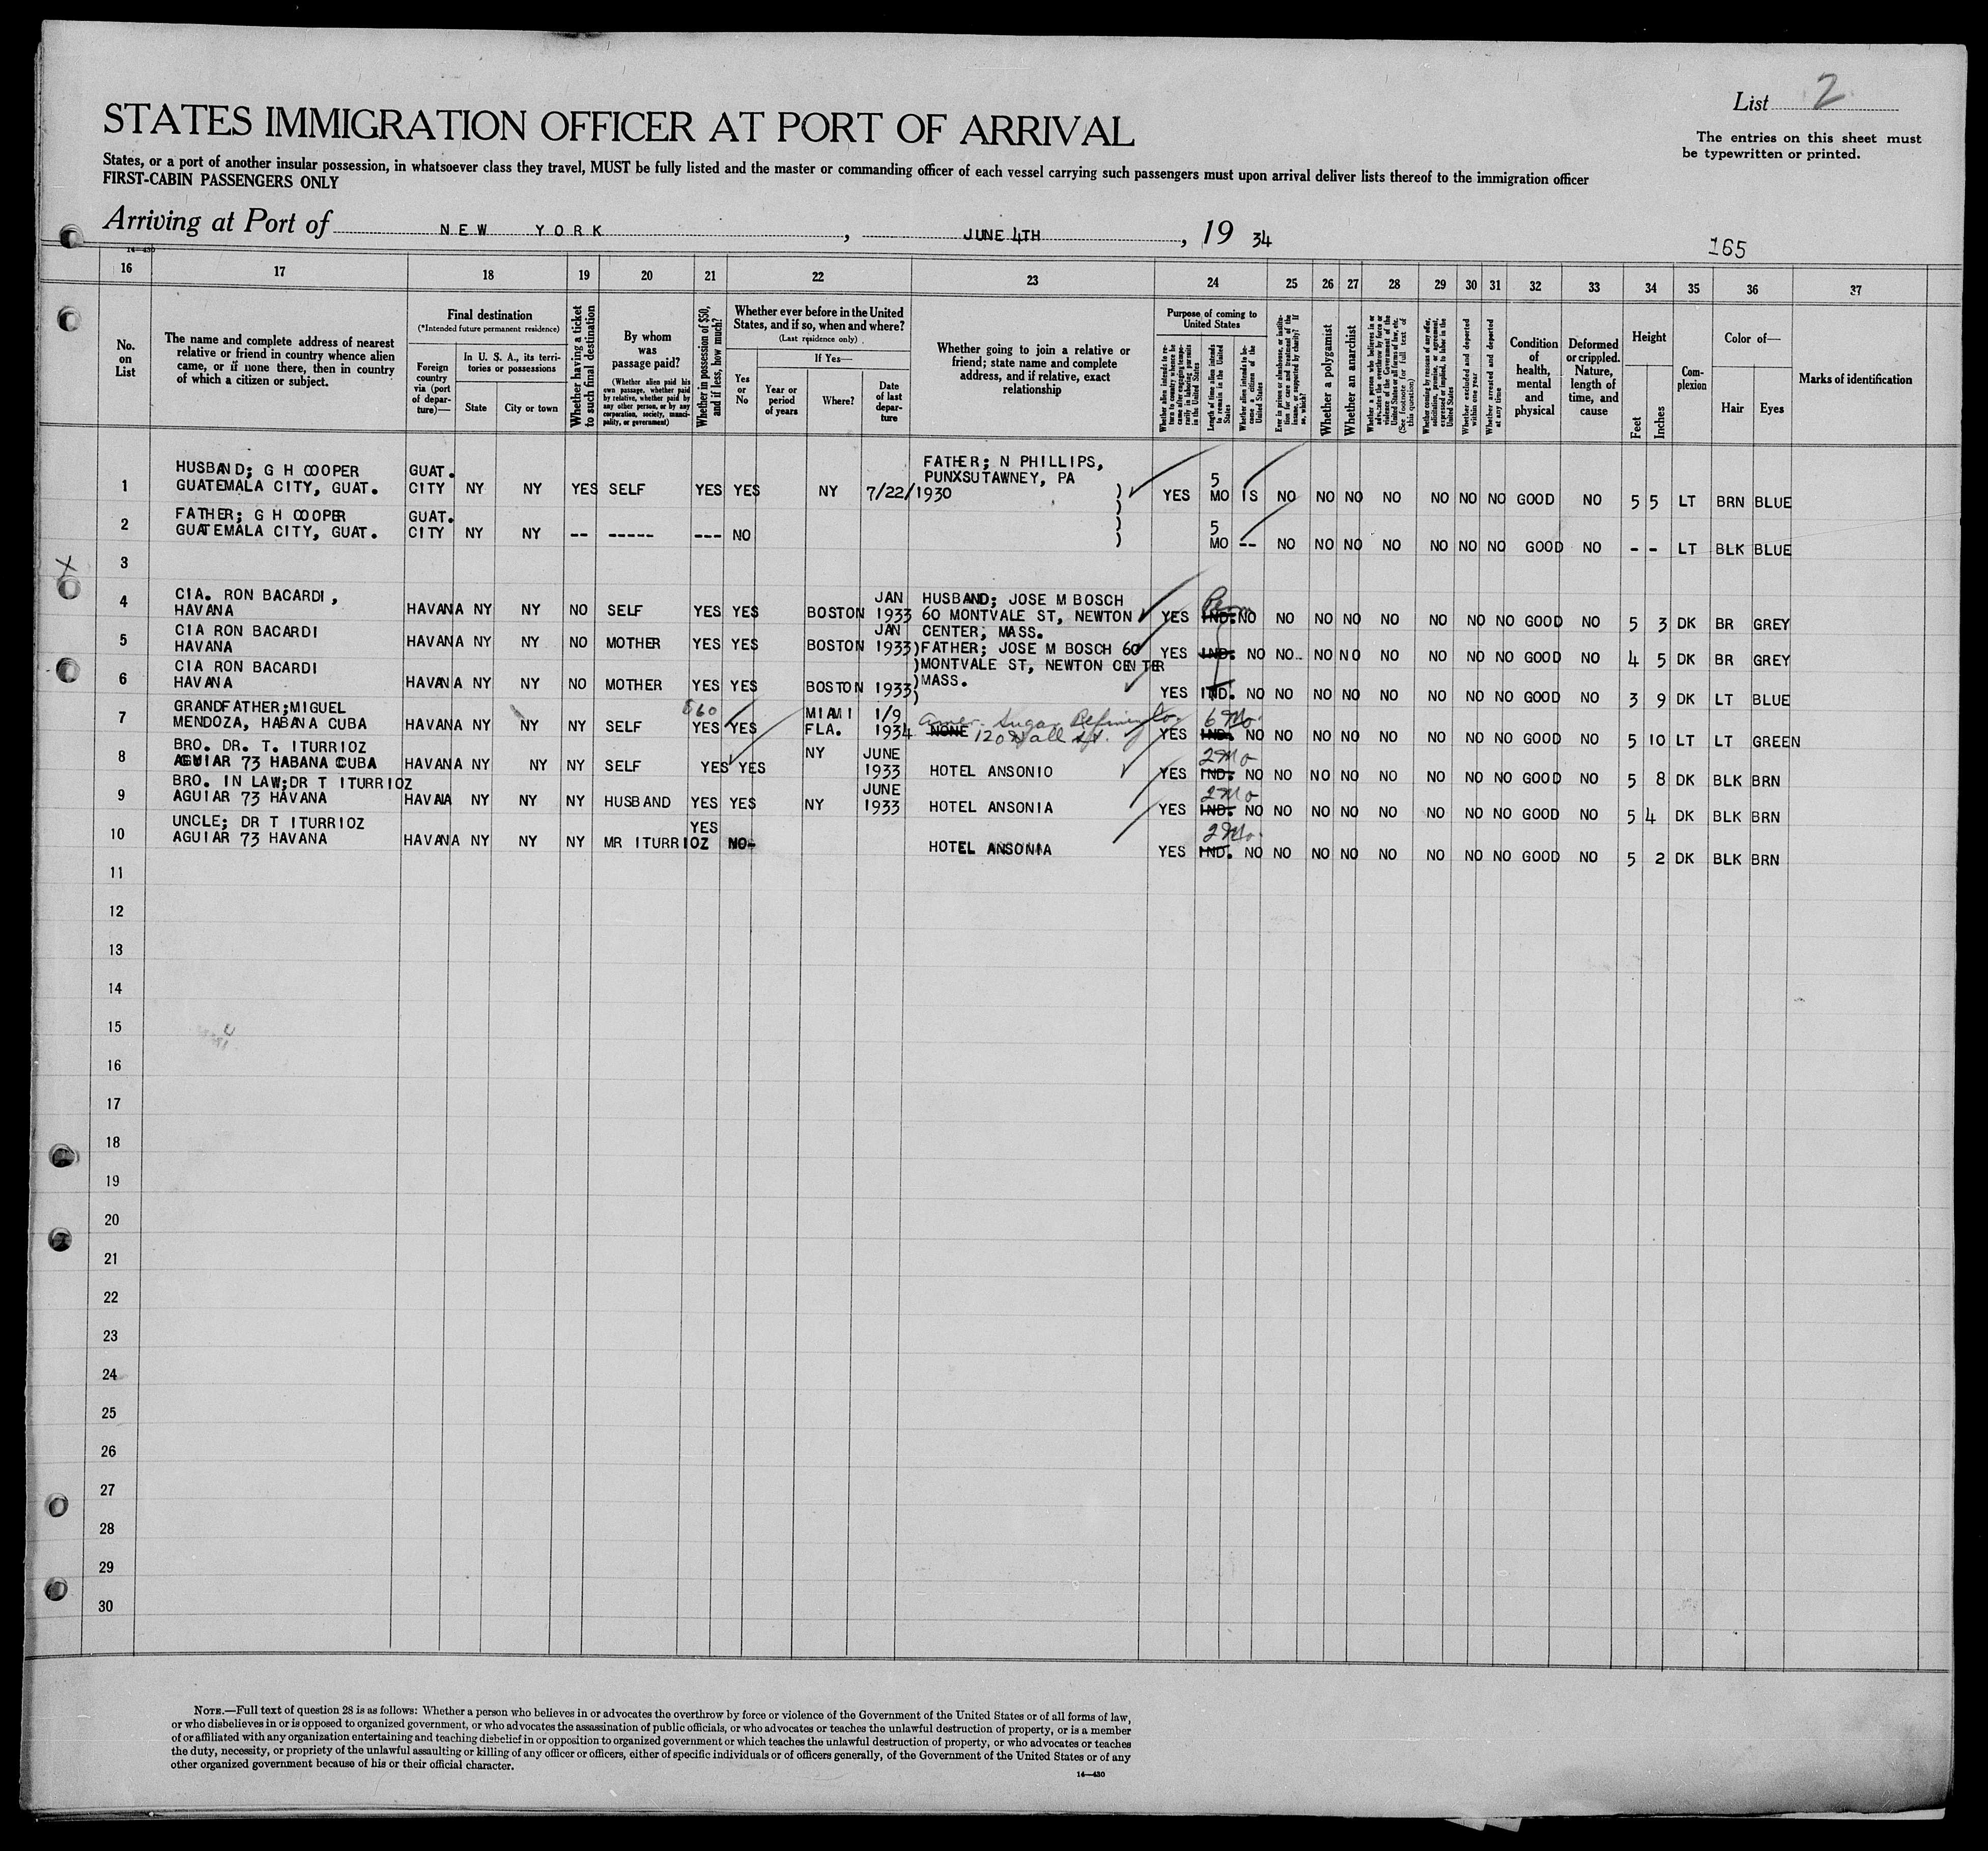 List 2
STATES IMMIGRATION OFFICER AT PORT OF ARRIVAL
The entries on this sheet must
be typewritten or printed.
States, or a port of another insular possession, in whatsoever class they travel, MUST be fully listed and the master or commanding officer of each vessel carrying such passengers must upon arrival deliver lists thereof to the immigration officer
FIRST-CABIN PASSENGERS ONLY
Arriving at Port of NEW YORK, JUNE 4TH, 19 34
14—430
165
16 17 18 19 20 21 22 23 24 25 26 27 28 29 30 31 32 33 34 35 36 37
No.
on
List
The name and complete address of nearest
relative or friend in country whence alien
came, or if none there, then in country
of which a citizen or subject.
Final destination
(*Intended future permanent residence)
Foreign
country
via (port
of depar-
ture)—
In U. S. A., its terri-
tories or possessions
State
City or town
Whether having a ticket
to such final destination
By whom
was
passage paid?
(Whether alien paid his
own passage, whether paid
by relative, whether paid by
any other person, or by any
corporation, society, munici-
pality, or government)
Whether in possession of $50,
and if less, how much?
Whether ever before in the United
States, and if so, when and where?
(Last residence only)
Yes
or
No
If Yes—
Year or
period
of years
Where?
Date
of last
depar-
ture
Whether going to join a relative or
friend; state name and complete
address, and if relative, exact
relationship
Purpose of coming to
United States
Whether alien intends to re-
turn to country whence he
came after engaging tempo-
rarily in laboring pursuits
in the United States
Length of time alien intends
to remain in the United
States
Whether alien intends to be-
come a citizen of the
United States
Ever in prison or almshouse, or institu-
tion for care and treatment of the
insane, or supported by charity? If
so, which?
Whether a polygamist
Whether an anarchist
Whether a person who believes in or
advocates the overthrow by force or
violence of the Government of the
United States or all forms of law, etc.
(See footnote for full text of
this question)
Whether coming by reason of any offer,
solicitation, promise, or agreement,
expressed or implied, to labor in the
United States
Whether excluded and deported
within one year
Whether arrested and deported
at any time
Condition
of
health,
mental
and
physical
Deformed
or crippled.
Nature,
length of
time, and
cause
Height
Feet
Inches
Com-
plexion
Color of—
Hair
Eyes
Marks of identification
FATHER; N PHILLIPS,
HUSBAND; G H COOPER GUAT. PUNXSUTAWNEY, PA 5
1 GUATEMALA CITY, GUAT. CITY NY NY YES SELF YES YES NY 7/22/1930 ) YES MO IS NO NO NO NO NO NO NO GOOD NO 5 5 LT BRN BLUE
FATHER; G H COOPER GUAT. ) 5
2 GUATEMALA CITY, GUAT. CITY NY NY -- ----- --- NO ) MO -- NO NO NO NO NO NO NO GOOD NO - - LT BLK BLUE
X 3
CIA. RON BACARDI, JAN HUSBAND; JOSE M BOSCH Perm
4 HAVANA HAVANA NY NY NO SELF YES YES BOSTON 1933 60 MONTVALE ST, NEWTON YES IND. NO NO NO NO NO NO NO NO GOOD NO 5 3 DK BR GREY
CIA RON BACARDI JAN CENTER, MASS.
5 HAVANA HAVANA NY NY NO MOTHER YES YES BOSTON 1933 )FATHER; JOSE M BOSCH 60 YES IND. NO NO NO NO NO NO NO NO GOOD NO 4 5 DK BR GREY
CIA RON BACARDI )MONTVALE ST, NEWTON CENTER
6 HAVANA HAVANA NY NY NO MOTHER YES YES BOSTON 1933 )MASS. YES IND. NO NO NO NO NO NO NO NO GOOD NO 3 9 DK LT BLUE
GRANDFATHER;MIGUEL 860 MIAMI 1/9 Amer. Sugar Refining Co. 6 Mo.
7 MENDOZA, HABANA CUBA HAVANA NY NY NY SELF YES YES FLA. 1934 NONE 120 Wall St. YES IND. NO NO NO NO NO NO NO NO GOOD NO 5 10 LT LT GREEN
BRO. DR. T. ITURRIOZ NY JUNE 2 Mo
8 AGUIAR 73 HABANA CUBA HAVANA NY NY NY SELF YES YES 1933 HOTEL ANSONIO YES IND. NO NO NO NO NO NO NO NO GOOD NO 5 8 DK BLK BRN
BRO. IN LAW;DR T ITURRIOZ JUNE 2 Mo
9 AGUIAR 73 HAVANA HAVANA NY NY NY HUSBAND YES YES NY 1933 HOTEL ANSONIA YES IND. NO NO NO NO NO NO NO NO GOOD NO 5 4 DK BLK BRN
UNCLE; DR T ITURRIOZ YES 2 Mo.
10 AGUIAR 73 HAVANA HAVANA NY NY NY MR ITURRIOZ NO- HOTEL ANSONIA YES IND. NO NO NO NO NO NO NO NO GOOD NO 5 2 DK BLK BRN
11
12
13
14
15
16
17
18
19
20
21
22
23
24
25
26
27
28
29
30
NOTE.—Full text of question 28 is as follows: Whether a person who believes in or advocates the overthrow by force or violence of the Government of the United States or of all forms of law,
or who disbelieves in or is opposed to organized government, or who advocates the assassination of public officials, or who advocates or teaches the unlawful destruction of property, or is a member
of or affiliated with any organization entertaining and teaching disbelief in or opposition to organized government or which teaches the unlawful destruction of property, or who advocates or teaches
the duty, necessity, or propriety of the unlawful assaulting or killing of any officer or officers, either of specific individuals or of officers generally, of the Government of the United States or of any
other organized government because of his or their official character.
14—430